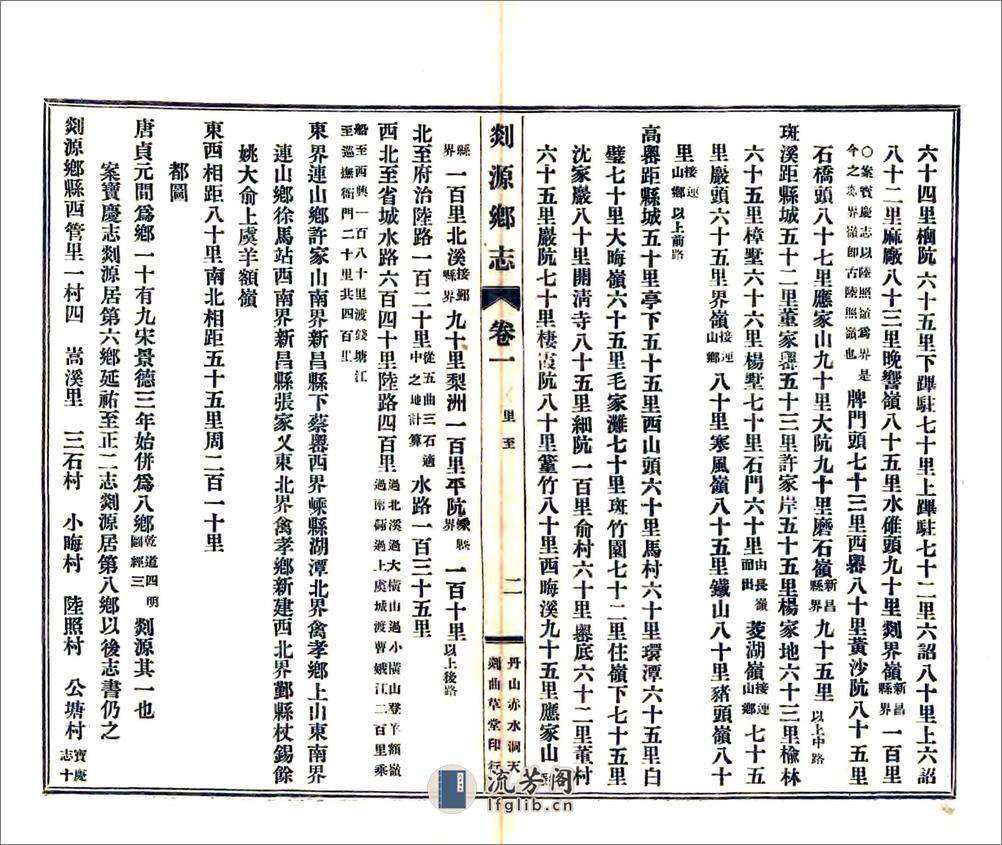 六十四里榧阬六十五里下蹕駐七十里上蹕駐七十二里六詔八十里上六詔
八十二里麻廠八十三里晚響嶺八十五里水碓頭九十里剡界嶺新昌縣界一百里
〇案寶慶志以陸照嶺爲界是今之剡界嶺卽古陸照嶺也 牌門頭七十三里西嶴八十里黃沙阬八十五里
石橋頭八十七里應家山九十里大阬九十里磨石嶺新昌縣界九十五里以上中路
班溪距縣城五十二里董家嶴五十三里許家岸五十五里楊家地六十三里楡林
六十五里樟墅六十六里楊墅七十里石門六十里由長嶺而出菱湖嶺接連山鄉七十五
里嚴頭六十五里界嶺接連山鄉八十里寒風嶺八十五里鐵山八十里豬頭嶺八十
里接連山鄉以上前路
高嶴距縣城五十里亭下五十五里西山頭六十里馬村六十里環潭六十五里白
璧七十里大晦嶺六十五里毛家灘七十里斑竹園七十二里住嶺下七十五里
沈家嚴八十里開淸寺八十五里細阬一百里俞村六十里嶴底六十二里董村
六十五里嚴阬七十里棲霞阬八十里篁竹八十里西晦溪九十五里應家山
剡源鄉志 卷一 里至 二 丹山赤水洞天 剡曲草堂印行
縣界一百里北溪接鄞縣界九十里梨洲一百里平阬嵊縣界一百十里以上後路
北至府治陸路一百二十里從五曲三石適中之地計算水路一百三十五里
西北至省城水路六百四十里陸路四百里過北溪過大橫山過小橫山登羊額嶺過南蘋過上虞城渡曹娥江二百里乘
船至西興一百八十里渡錢塘江至巡撫衙門二十里共四百里
東界連山鄉許家山南界新昌縣下蔡嶴西界嵊縣湖潭北界禽孝鄉上山東南界
連山鄉徐馬站西南界新昌縣張家乂東北界禽孝鄉新建西北界鄞縣杖錫餘
姚大俞上虞羊額嶺
東西相距八十里南北相距五十五里周二百一十里
都圖
唐貞元間爲鄉一十有九宋景德三年始併爲八鄉乾道四明圖經三剡源其一也
案寶慶志剡源居第六鄉延祐至正二志剡源居第八鄉以後志書仍之
剡源鄉縣西管里一村四 嵩溪里 三石村 小晦村 陸照村 公塘村寶慶志十
流芳阁
lfglib.cn